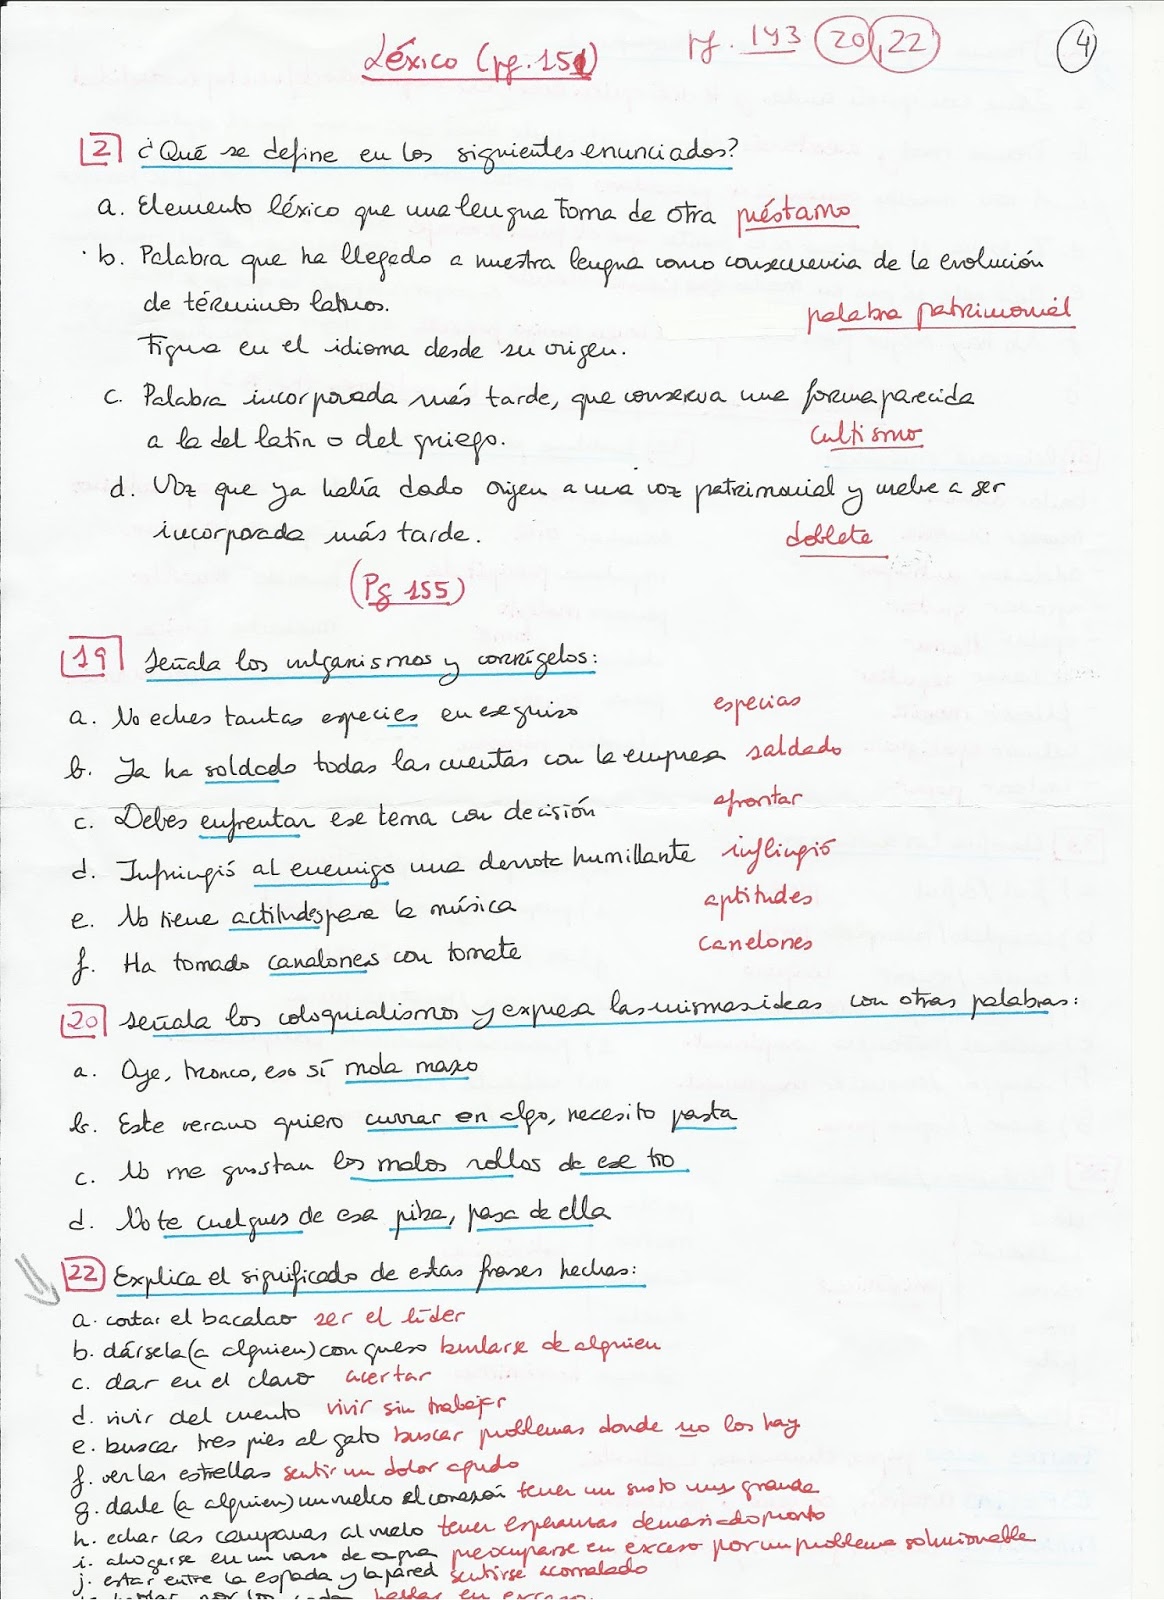 Léxico (pg. 151)
pg. 143 20, 22
4
2 ¿Qué se define en los siguientes enunciados?
a. Elemento léxico que una lengua toma de otra préstamo
b. Palabra que ha llegado a nuestra lengua como consecuencia de la evolución
de términos latinos. palabra patrimonial
Figura en el idioma desde su origen.
c. Palabra incorporada más tarde, que conserva una forma parecida
a la del latín o del griego. cultismo
d. Voz que ya había dado origen a una voz patrimonial y vuelve a ser
incorporada más tarde. doblete
(Pg 155)
19 Señala los vulgarismos y corrígelos:
a. No eches tantas especies en ese guiso especias
b. Ya ha soldado todas las cuentas con la empresa saldado
c. Debes enfrentar ese tema con decisión afrontar
d. Infringió al enemigo una derrota humillante inflingió
e. No tiene actitudes para la música aptitudes
f. Ha tomado canalones con tomate canelones
20 Señala los coloquialismos y expresa las mismas ideas con otras palabras:
a. Oye, tronco, eso sí mola mazo
b. Este verano quiero currar en algo, necesito pasta
c. No me gustan los malos rollos de ese tío
d. No te cuelgues de esa piba, pasa de ella
22 Explica el significado de estas frases hechas:
a. cortar el bacalao ser el líder
b. dársela (a alguien) con queso burlarse de alguien
c. dar en el clavo acertar
d. vivir del cuento vivir sin trabajar
e. buscar tres pies al gato buscar problemas donde no los hay
f. ver las estrellas sentir un dolor agudo
g. darle (a alguien) un vuelco el corazón tener un susto muy grande
h. echar las campanas al vuelo tener esperanzas demasiado pronto
i. ahogarse en un vaso de agua preocuparse en exceso por un problema solucionable
j. estar entre la espada y la pared sentirse acorralado
hablar por los codos hablar en exceso.